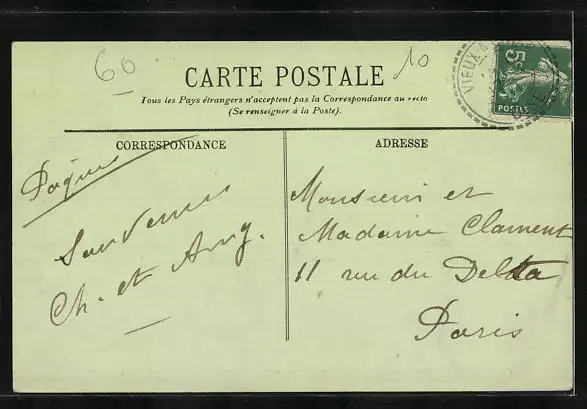 60
10
CARTE POSTALE
Tous les Pays étrangers n'acceptent pas la Correspondance au recto
(Se renseigner à la Poste).
VIEUX
5c
POSTES
CORRESPONDANCE
ADRESSE
Pâques
Souvenirs
Ch. et
Monsieur et
Madame Clament
11 rue du Delta
Paris